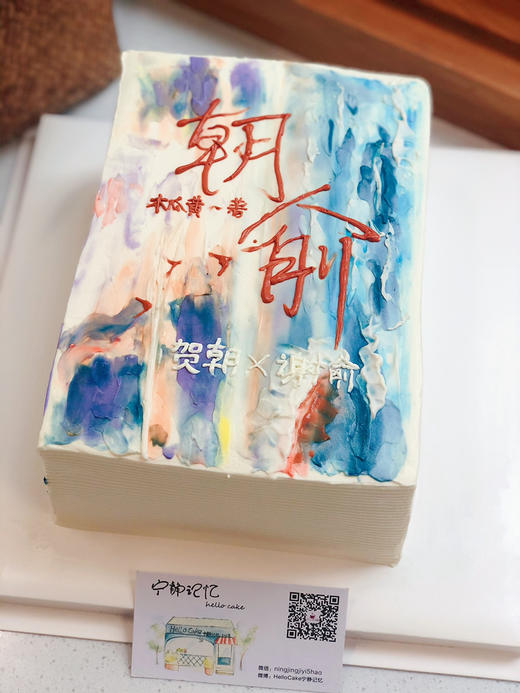 朝
俞
木瓜黄~著
贺朝×谢俞
宁静记忆
hello cake
Hello Cake
微信:ningjingjiyi5hao
微博:HelloCake宁静记忆